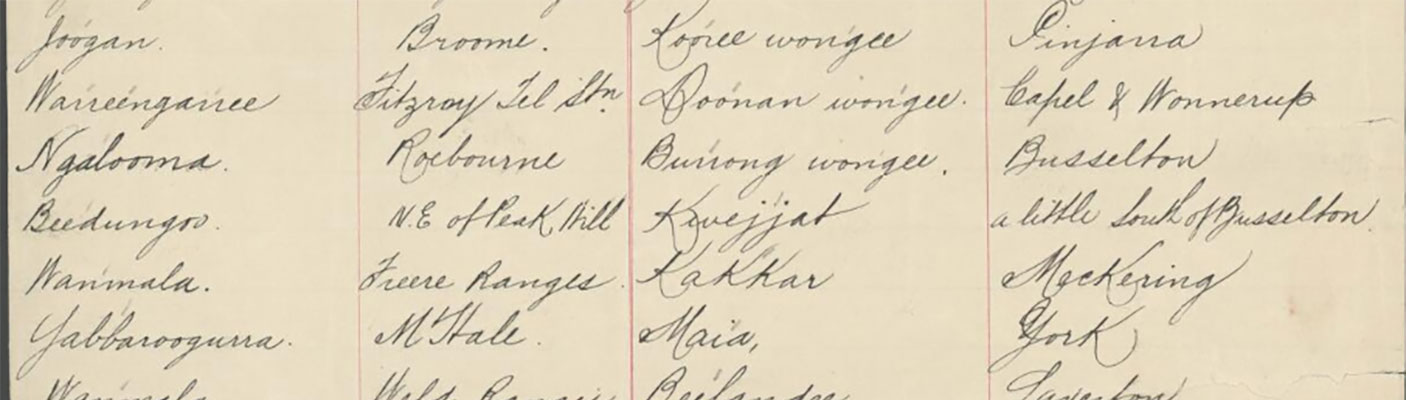 Joogan. Broome. Kooree wongee Pinjarra
Warreengarree Fitzroy Tel Stn. Doonan wongee. Capel & Wonnerup
Ngalooma. Roebourne Burrong wongee. Busselton
Beedungoo. N.E of Peak Hill Kwejjat a little South of Busselton.
Wanmala. Freere Ranges. Kakkar Meckering
Yabbaroogurra. Mt Hale. Maia, York
Wanmala Weld Ranges